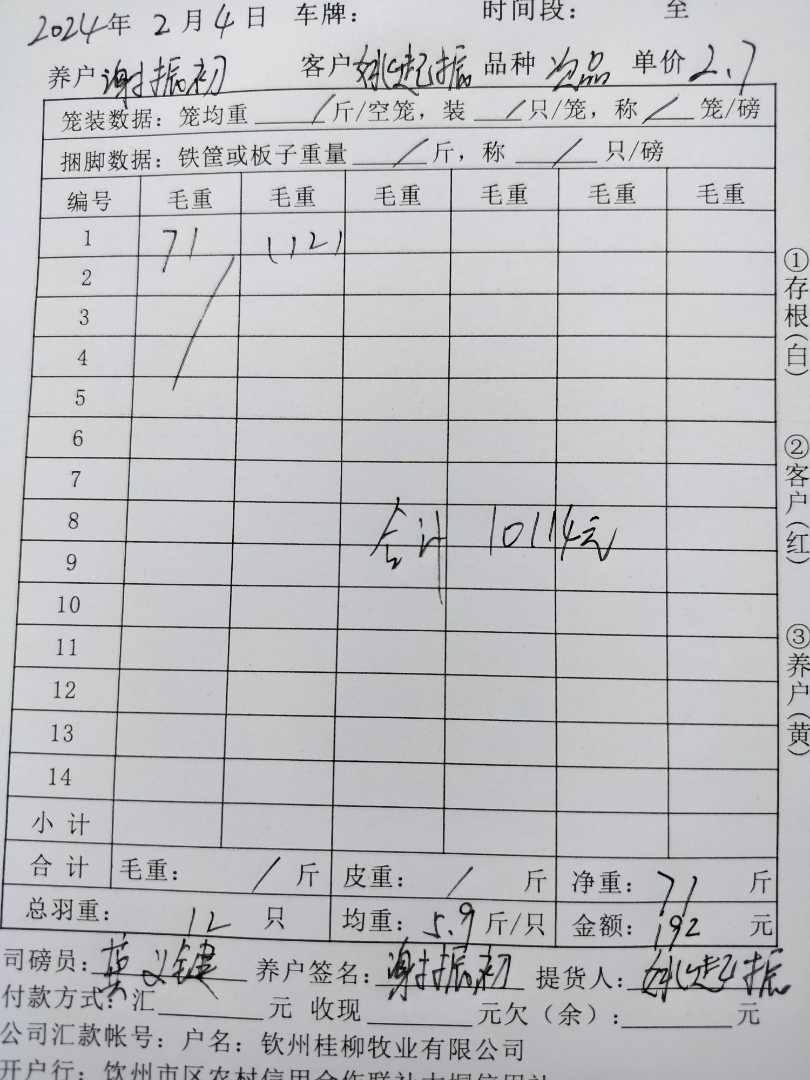 2024年 2 月 4 日 车牌： 时间段： 至
养户 谢振初 客户 姚起振 品种 次品 单价 2.7
笼装数据：笼均重 / 斤/空笼，装 / 只/笼，称 / 笼/磅
捆脚数据：铁筐或板子重量 / 斤，称 / 只/磅
编号 毛重 毛重 毛重 毛重 毛重 毛重
1 71 (12)
2
3
4
5
6
7
8 合计 10114元
9
10
11
12
13
14
小 计
合 计 毛重： / 斤 皮重： / 斤 净重： 71 斤
总羽重： 12 只 均重： 5.9 斤/只 金额： 192 元
司磅员：黄义键 养户签名：谢振初 提货人：姚起振
付款方式：汇 元 收现 元欠（余）： 元
公司汇款帐号：户名：钦州桂柳牧业有限公司
开户行：钦州市区农村信用合作联社大垌信用社
①存根(白)
②客户(红)
③养户(黄)